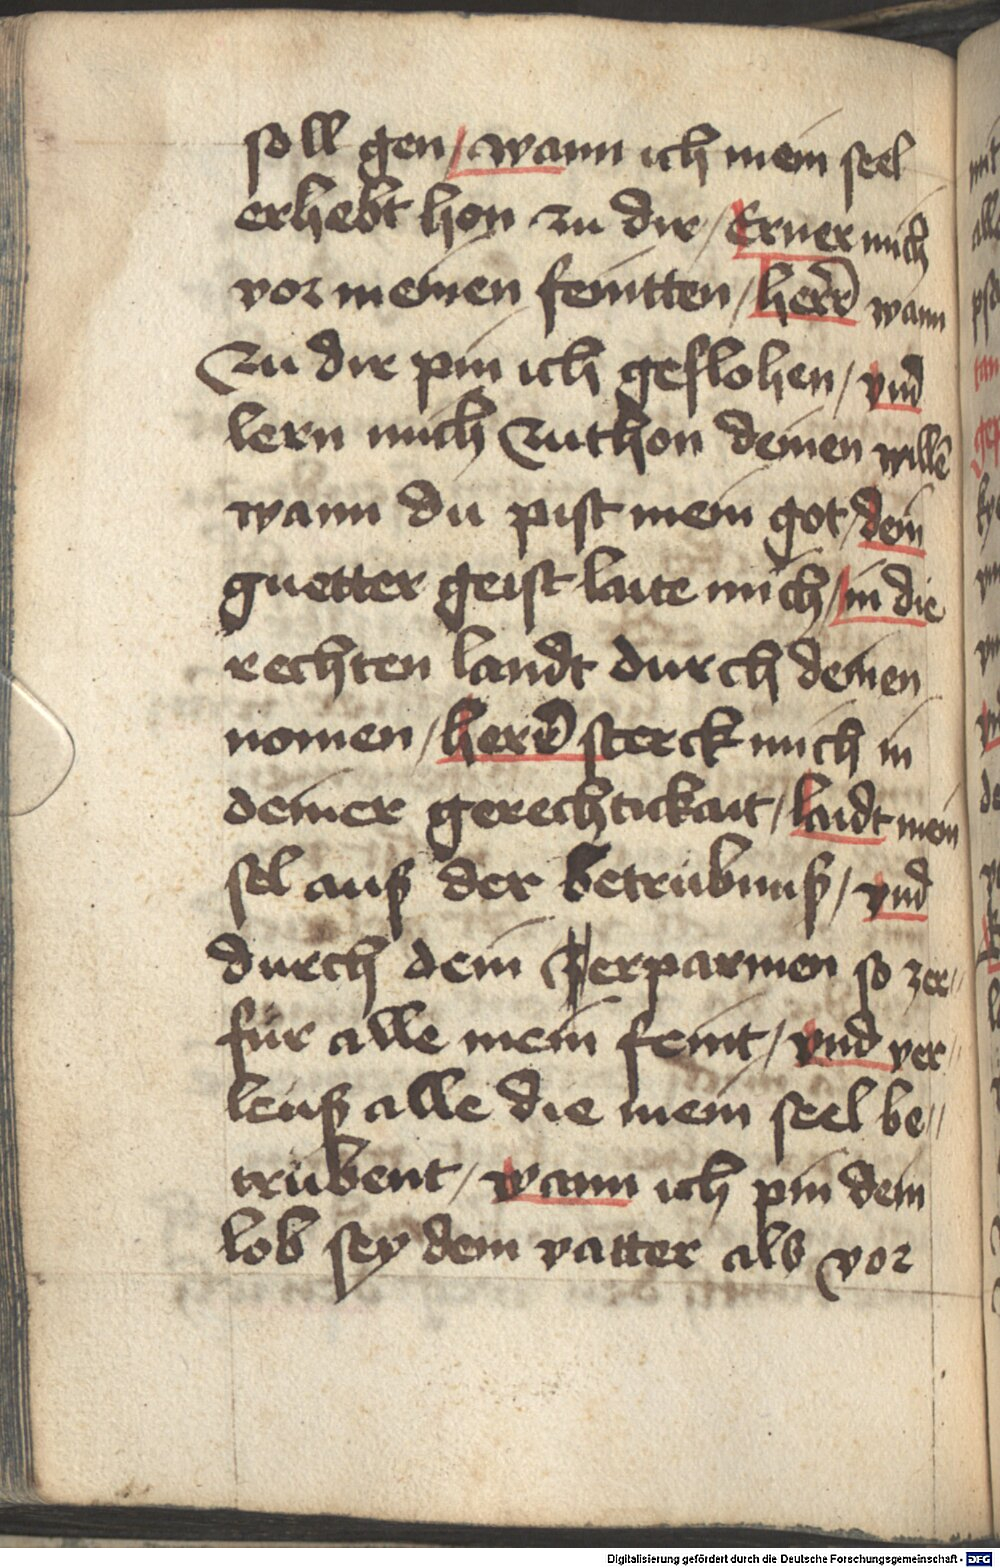 soll gen / wann ich mein seel
erhebt hon zu dir / Erner mich
vor meinen feintten / herr wann
Zu dir pin ich geflohen / vnd
lern mich Zuthon deinen willē
wann du pist mein got / dein
guetter geist laite mich / in die
rechten landt durch deinen
nomen / herr sterck mich in
deiner gerechtickait / laidt mein
sel auß der betrubnuß / vnd
durch dein erparmen so zer⸗
fur alle mein feint / vnd ver⸗
leuß alle die mein seel be⸗
trubent / wann ich pin dein
lob sey dem vatter als vor
Digitalisierung gefördert durch die Deutsche Forschungsgemeinschaft - DFG